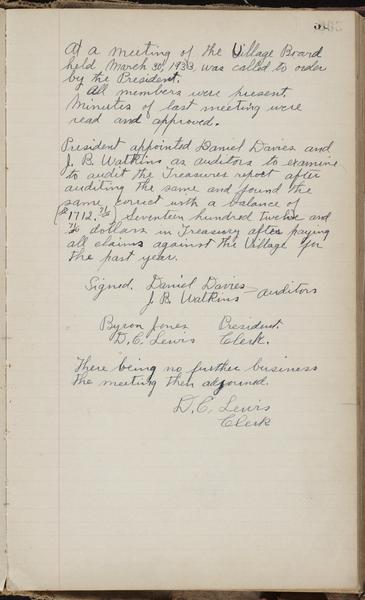 At a meeting of the Village Board
held March 30, 1933 was called to order
by the President.
All members were present.
Minutes of last meeting were
read and approved.
President appointed Daniel Davies and
J. B. Watkins as auditors to examine
to audit the Treasures report after
auditing the same and found the
same correct with a balance of
($1712. ) Seventeen hundred twelve and
dollars in Treasury after paying
all claims against the Village for
the past year.
Signed. Daniel Davies
J. B. Watkins - auditors
Byron Jones President.
D. C. Lewis Clerk.
There being no further business
the meeting then adjourned.
D. C. Lewis
Clerk